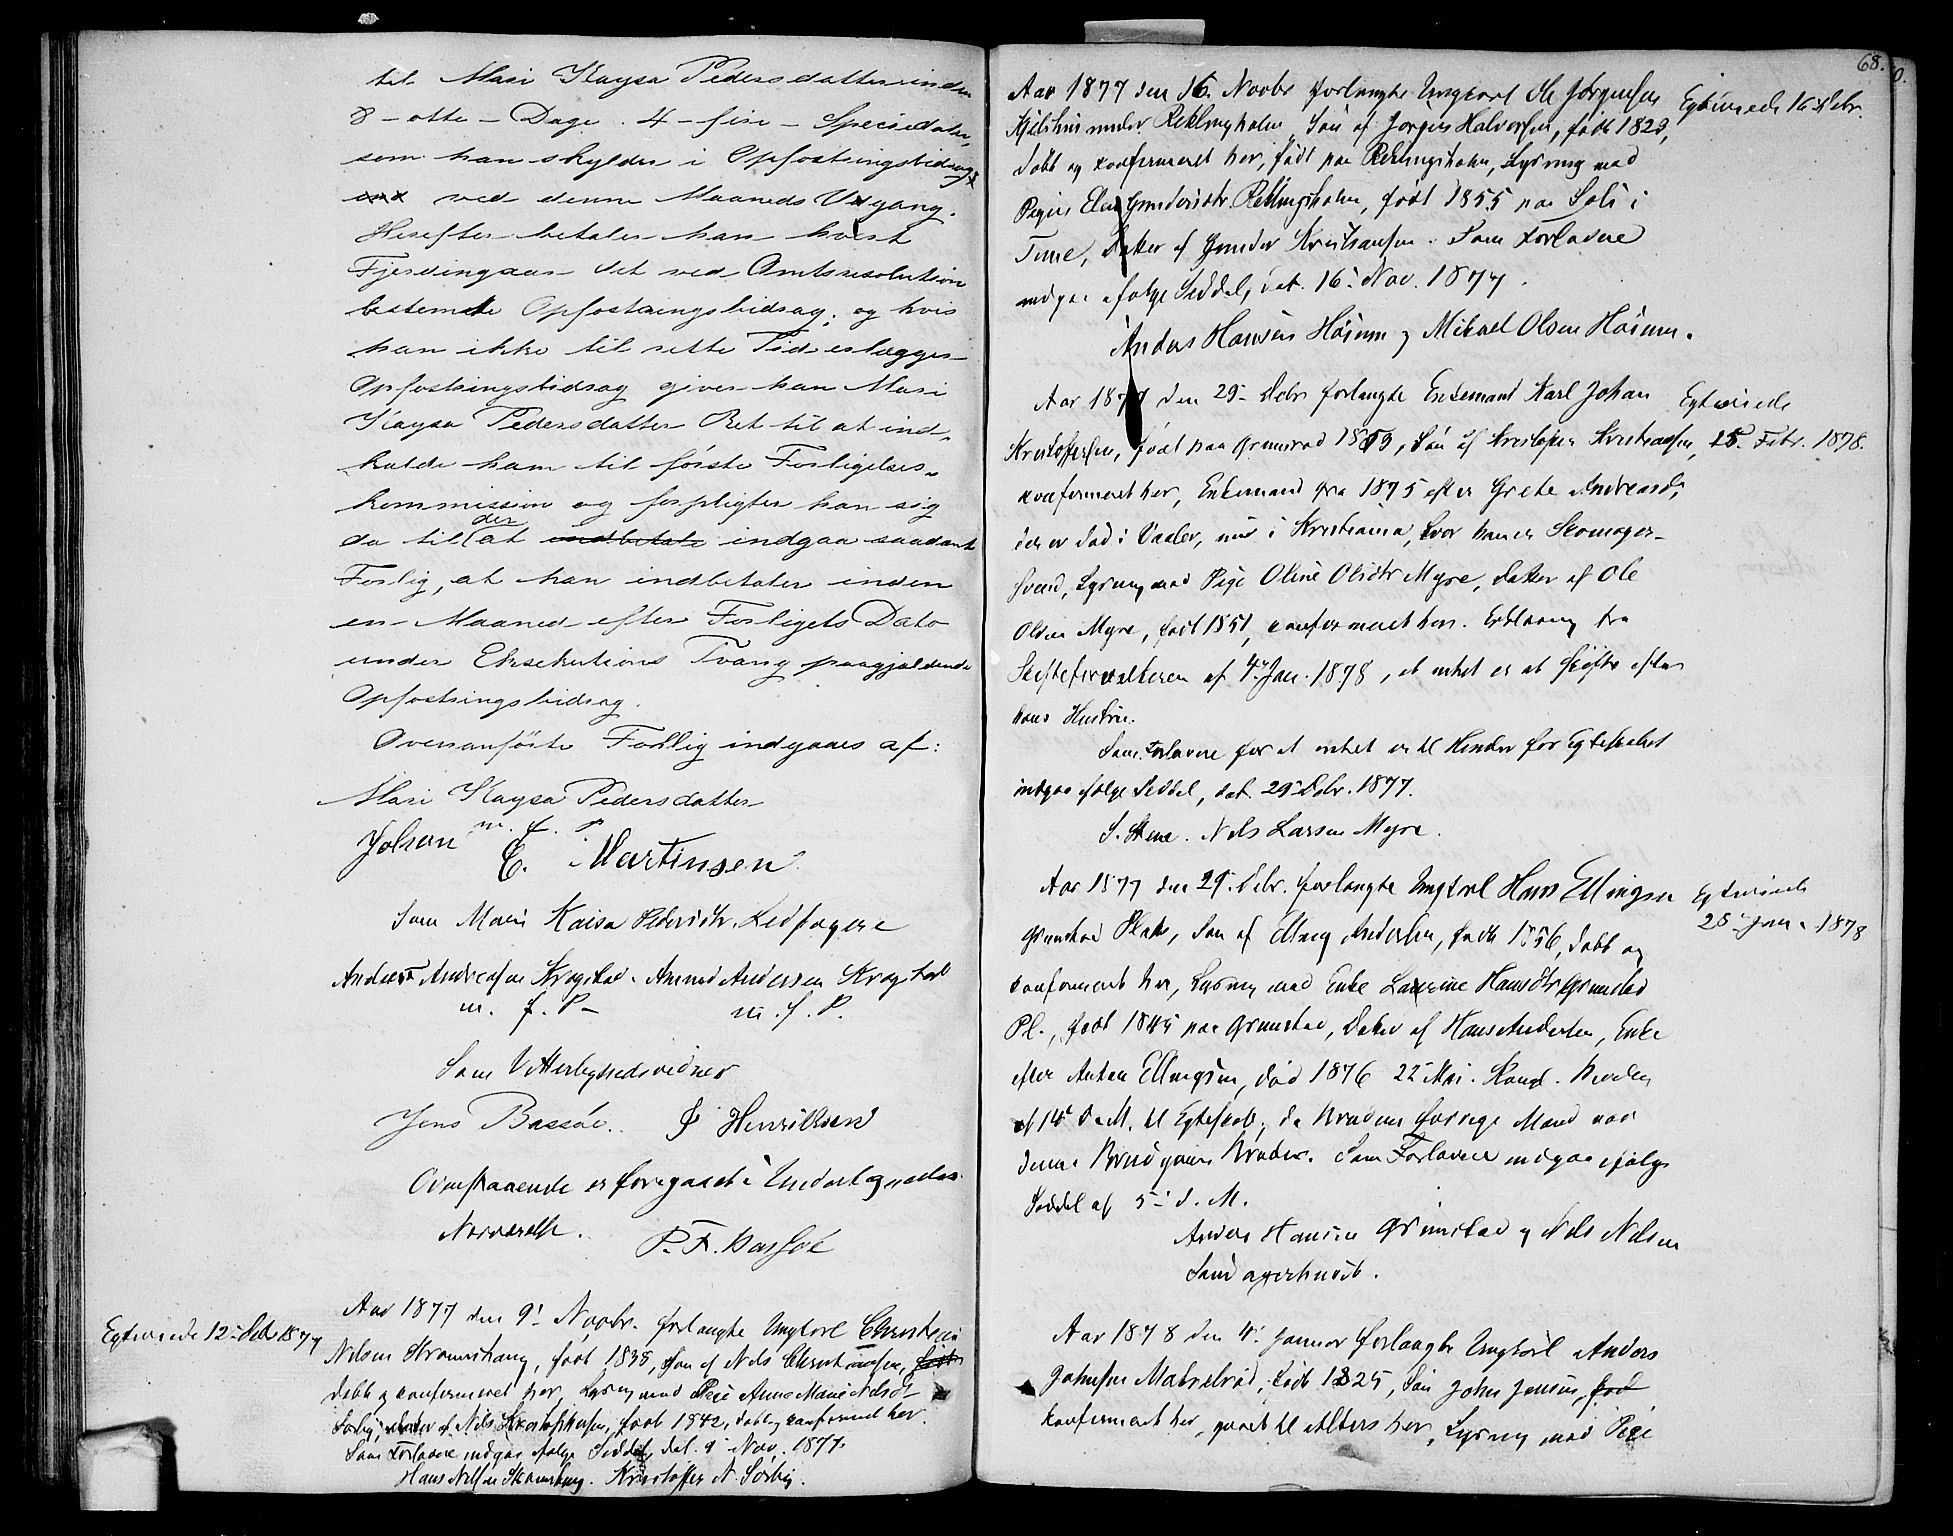 til Mari Kaysa Pedersdatter inden
8 - otte - Dage. 4 - fire - Speciedaler,
som han skylder i Opfostringsbidrag
ved denne Maaneds Udgang.
Herefter betaler han hvert
Fjerdingaar det ved Amtsresolution
bestemte Opfostringsbidrag; og hvis
han ikke til rette Tid erlægger
Opfostringsbidrag giver han Mari
Kaysa Pedersdatter Ret til at ind-
kalde ham til første Forligelses-
kommission og forpligter han sig
da til der at indbetale indgaa saadant
Forlig, at han indbetaler inden
en Maaned efter Forligets Dato
under Eksekutions Tvang paagjældende
Opfostringsbidrag.
Ovenanførte Forlig indgaaes af:
Mari Kaysa Pedersdatter
m. f. P.
Johan C. Martinsen
Som Maris Kaisa Pedersdtr. Ledsagere
Anders Andreasen Kragstad. Amund Andersen Kragstad
m. f. P. m. f. P.
Som Vitterlighedsvidner
Jens Bassøe. Henriksen
Ovenstaaende er foregaaet i Undertegnedes
Nærværelse. P. F. Bassøe
Egteviede 12- Debr 1877
Aar 1877 den 9' Novbr. forlangte Ungkarl Christian
Nilsen født 1838, Søn af Nils Christiansen,
døbt og konfirmeret her, Lysning med Pige Anne Marie Nilsdt
Sørby, Datter af Nils Kristoffersen, født 1842, døbt og konfirmeret her.
Som Forlovere indgaa ifølge Seddel, dat. 9' Nov. 1877.
Hans Nilsen Kristoffer N. Sørby.
68.
Aar 1877 den 16. Novbr forlangte Ungkarl Ole Jørgensen
Egteviede 16 Debr.
under Reklingholm, Søn af Jørgen Halvorsen, født 1823,
døbt og konfirmeret her, født paa Reklingsholm, Lysning med
Pigen Elen Gundersdtr. Reklingsholm, født 1855 paa Soli i
Tune, Datter af Gunder Kristiansen. Som Forlovere
indgaa ifølge Seddel, dat. 16' Nov. 1877.
Anders Hansen Høium og Mikael Olsen Høium.
Aar 1877 den 29- Debr forlangte Enkemand Karl Johan
Egteviede
Kristoffersen, født paa Grimsrød Søn af Kristoffer Kristiansen,
25. Febr. 1878.
konfirmeret her, Enkemand fra 1875 efter Grete Andreasd,
der er død i Vaaler, nu i Kristiania, hvor han er Skomager-
svend, Lysning med Pige Oline Olsdtr Myre, Datter af Ole
Olsen Myre, født 1851, konfirmeret her. Erklæring fra
Skifteforvalteren af 4' Jan. 1878, at intet er at skifte efter
hans Hustru.
Som Forlovere for at intet er til Hinder for Egteskabet
indgaa ifølge Seddel, dat. 29' Debr. 1877.
S. Stene. Nils Larsen Myre.
Aar 1877 den 29. Debr. forlangte Ungkarl Hans Ellingsen
Egteviede
28' Jan. 1878
Grimstad Plads, Søn af Elling Andersen, født 1856, døbt og
konfirmeret her, Lysning med Enke Laurine Hansdtr Grimstad
Pl., født 1845 paa Grimstad, Datter af Hans Andersen, Enke
efter Anton Ellingsen, død 1876 22' Mai.
af 14' d. M. til Egteskab, da Brudens forrige Mand var
denne Brudgoms Broder. Som Forlovere indgaa ifølge
Seddel af 5' d. M.
Anders Hansen Grimstad og Nils Nilsen
Aar 1878 den 4' Januar forlangte Ungkarl Anders
Johnsen født 1825, Søn John Jensen, født
konfirmeret her, gaaet til Alters her, Lysning med Pige